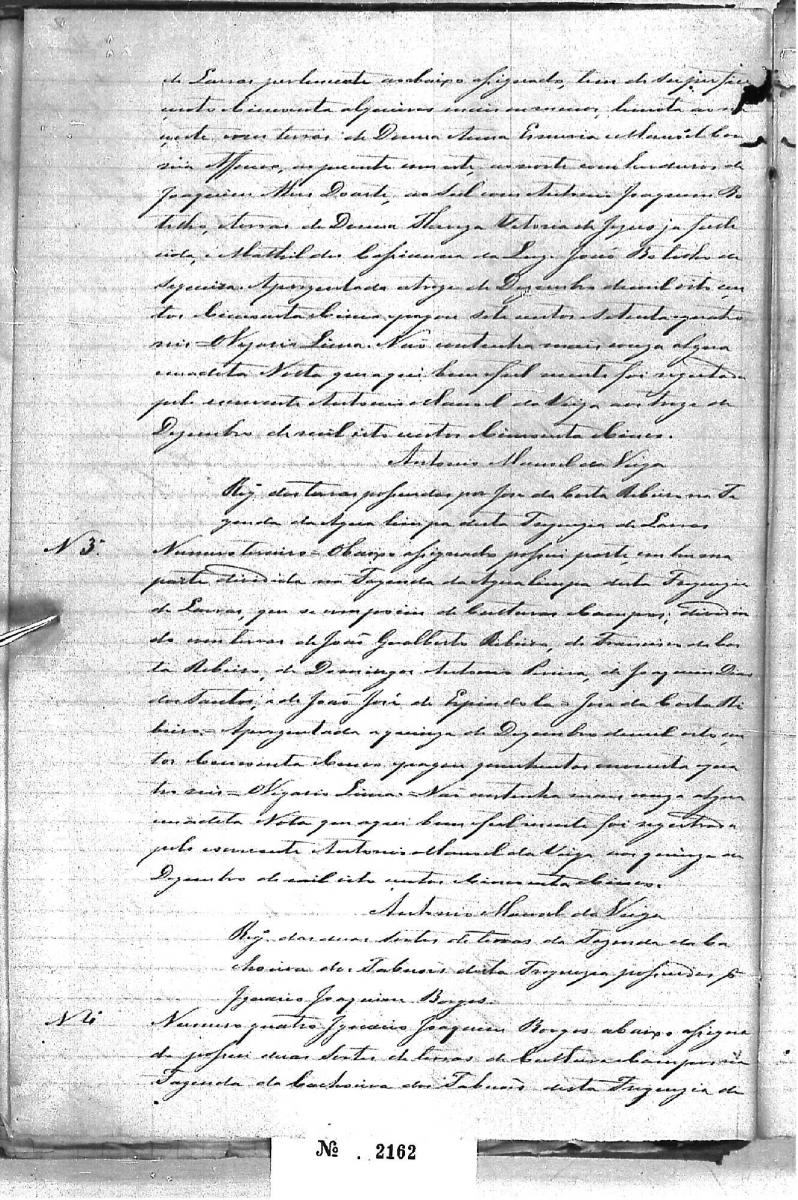 de Lavras pertencente ao abaixo assignado, tem de superficie
cento e cincoenta alqueires mais ou menos, limita ao na
cente com terras de Donna Anna e Manoel Cor
ria Affonso, ao poente com este, ao norte com herdeiros de
Joaquim Alves Duarte, ao Sul com Antonio Joaquim Bo
telho, e terras de Donna Vitoria de Jesus ja fale
cida, e Mathildes da Luz. João Baptista de
Siqueira. Aprezentada a treze de Dezembro de mil oito cen
tos e Cincoenta e Cinco, pagou sete centos e setenta e quatro
reis = Vigario Lima. Não continha mais couza algua
em a dita Notta que aqui bem e fielmente foi registrada
pelo escrevente Antonio Manoel da Veiga aos treze de
Dezembro de mil oito centos e Cincoenta e Cinco.
Antonio Manoel da Veiga
Reg. das terras possuidas por José da Costa Ribeiro na Fa
zenda da Agua limpa desta Freguezia de Lavras
N 3.
Numero terceiro = O abaixo assignado possui parte, em huma
parte dividida na Fazenda da Agua limpa desta Freguezia
de Lavras, que se compoem de Culturas e Campos; dividin
do com terras de João Gualberto Ribeiro, de Francisco da Cos
ta Ribeiro, de Domingos Antonio Pereira, de Joaquim Dias
dos Santos, e de João José de Espindola = José da Costa Ri
beiro = Aprezentada a quinze de Dezembro de mil oito cen
tos e Cincoenta e Cinco pagou quinhentos e noventa e qua
tro reis = Vigario Lima = Não continha mais couza algua
em a dita Nota que aqui bem e fielmente foi registrada
pelo escrevente Antonio Manoel da Veiga aos quinze de
Dezembro de mil oito centos e cincoenta e Cinco.
Antonio Manoel da Veiga
Reg. das duas Sortes de terras da Fazenda da Ca
choeira dos Tabuões desta Freguezia possuidas p
Ignacio Joaquim Borges.
N 4
Numero quatro Ignacio Joaquim Borges abaixo assigna
do possui duas Sortes de terras de Cultura e Campos na
Fazenda da Cachoeira dos Tabuões desta Freguezia de
Nº 2162